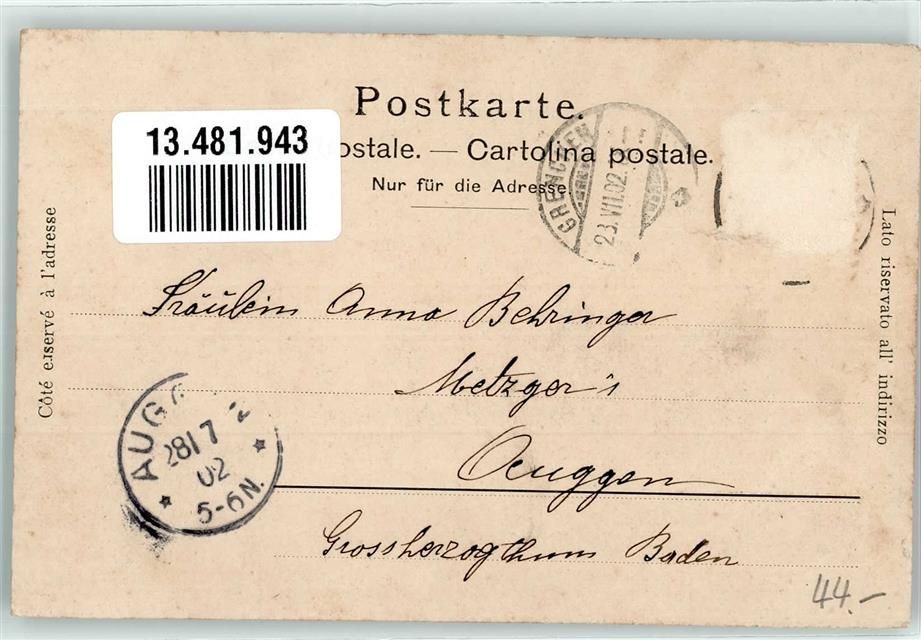 Postkarte.
13.481.943
ostale. — Cartolina postale.
Nur für die Adresse.
GRENCHEN
23.VII.02.
Côté réservé à l'adresse
Lato riservato all' indirizzo
Fräulein Anna Behringer
Metzger's
Auggen
Grossherzogthum Baden
AUGG
28 17
02
5-6N.
44.-